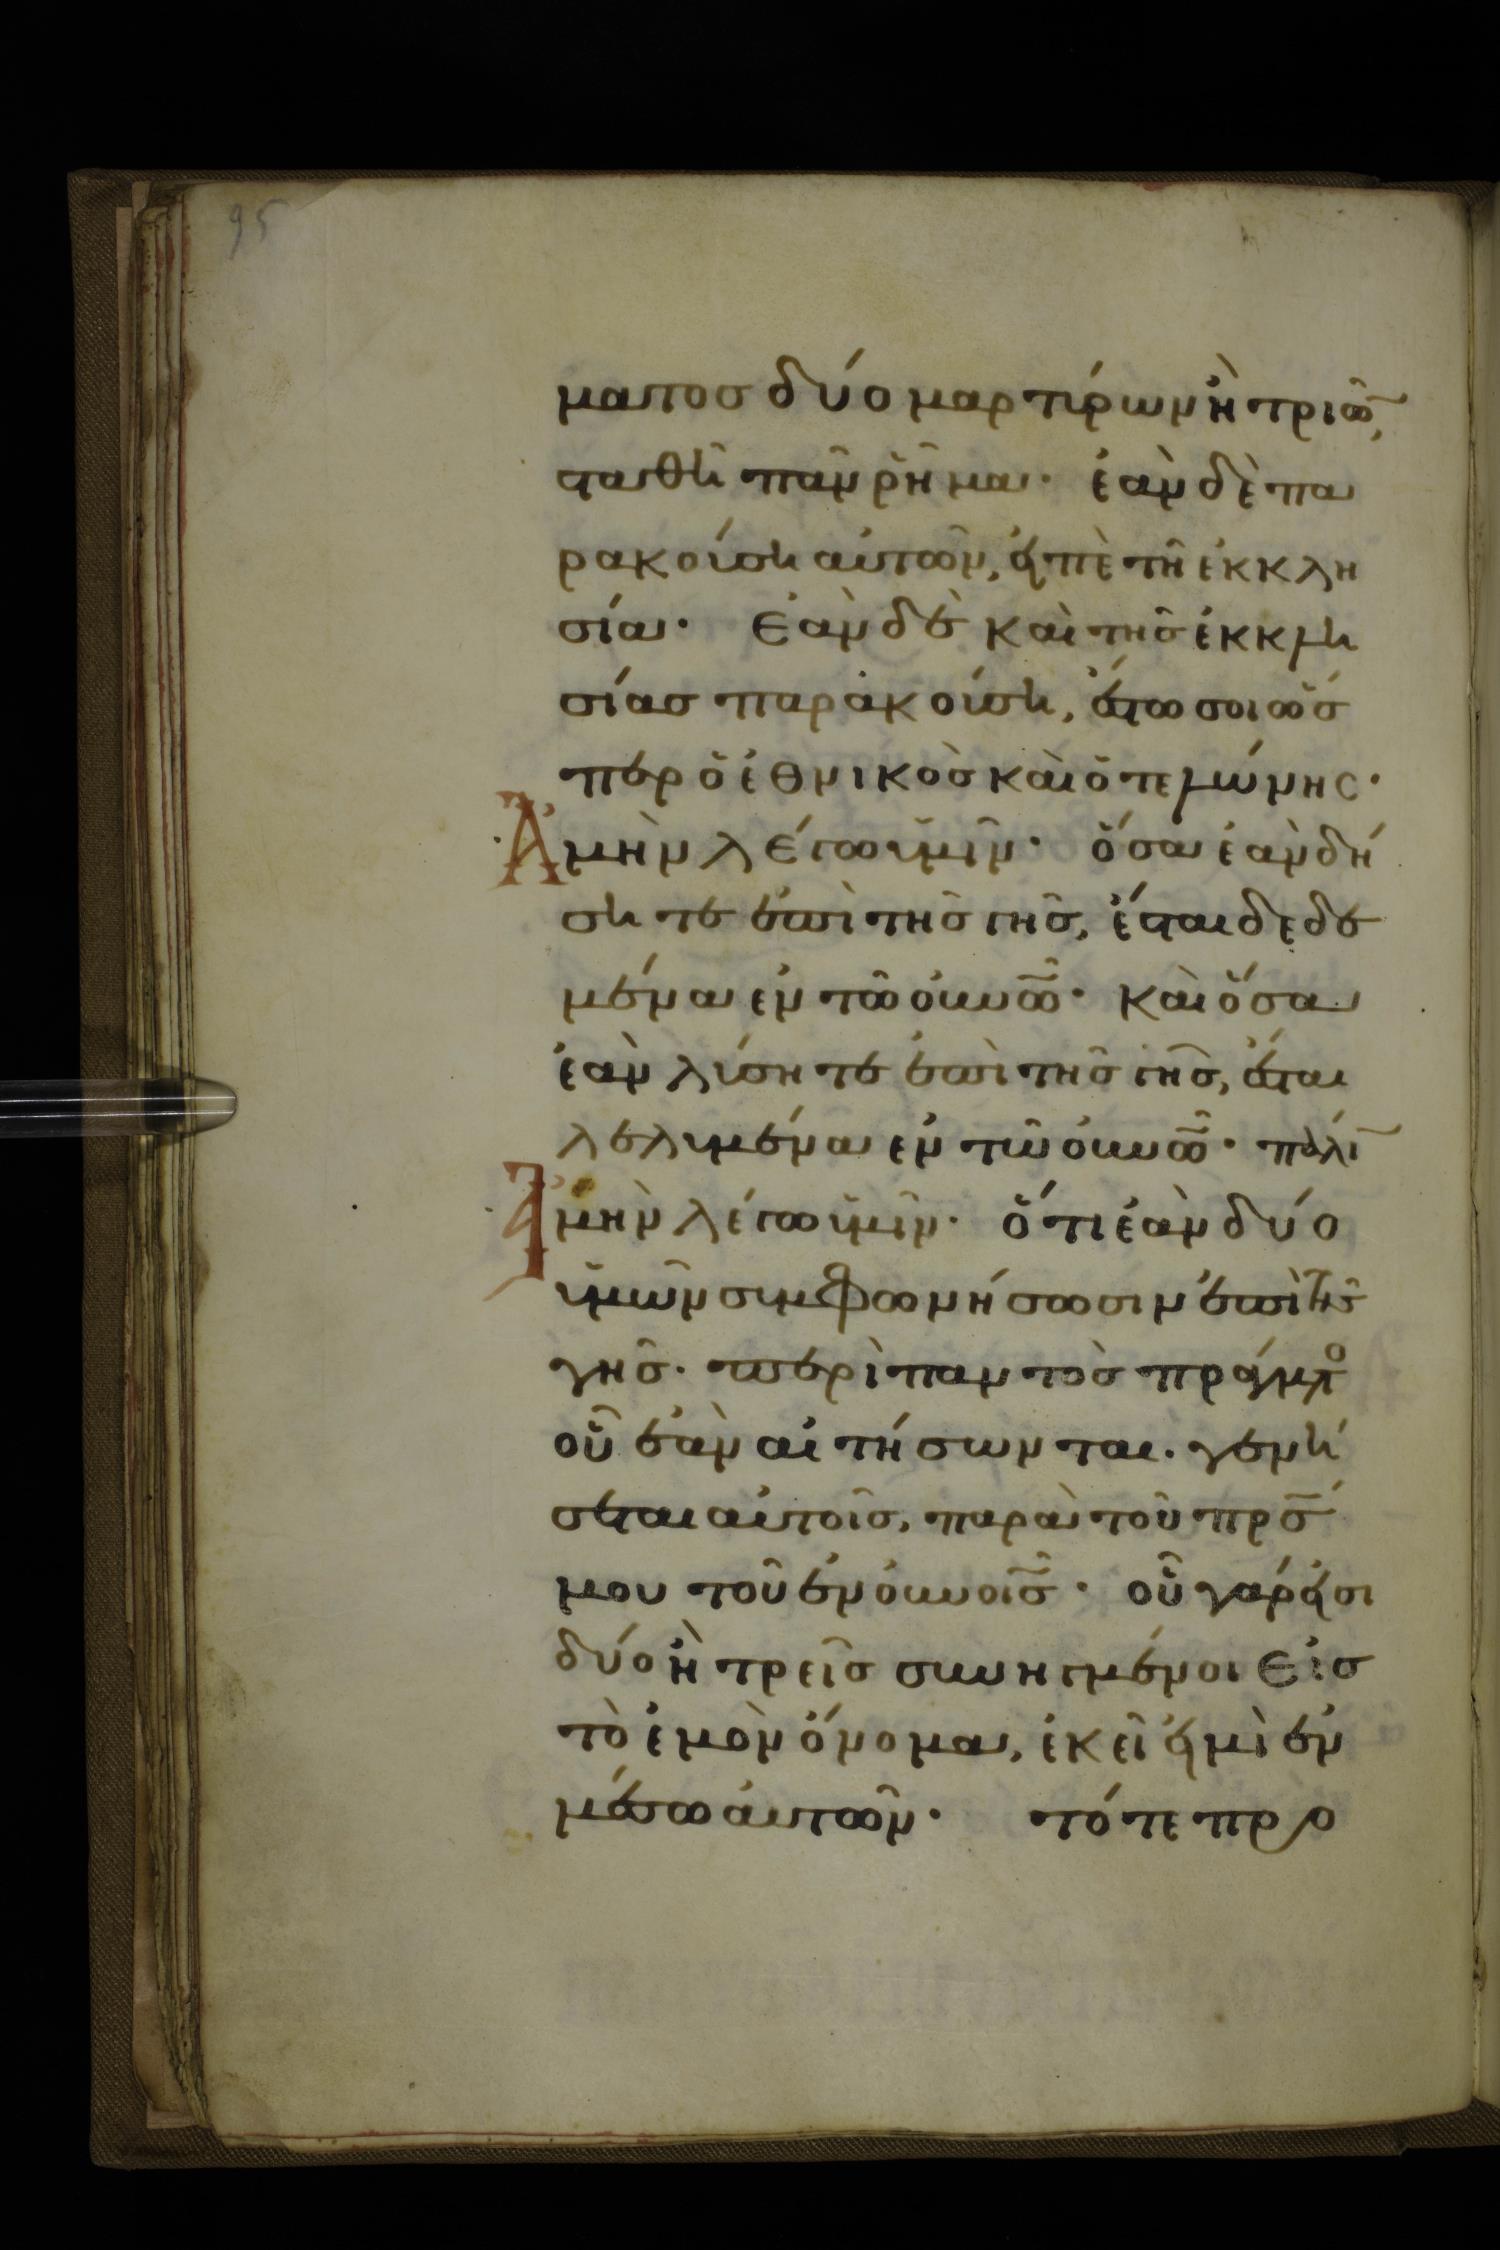 95
ματος δύο μαρτύρων ἢ τριῶ͂,
σταθῆ πᾶν ῥῆμα· ἐὰν δὲ πα
ρακούση αὐτῶν, εἰπὲ τῆ ἐκκλη
σία· Ἐὰν δὲ καὶ τῆς ἐκκλη
σίας παρακούση, ἔστω σοι ὥσ
περ ὁ ἐθνικὸς καὶ ὁ τελώνης·
Ἀμὴν λέγω ὑμῖν· ὅσα ἐὰν δή
σητε ἐπὶ τῆς γῆς, ἔσται δεδε
μένα ἐν τῶ οὐνῶ· καὶ ὅσα
ἐὰν λύσητε ἐπὶ τῆς γῆς, ἔσται
λελυμένα ἐν τῶ οὐνῶ· πάλι
Ἀμὴν λέγω ὑμῖν· ὅτι ἐὰν δύο
ὑμῶν συμφωνήσωσιν ἐπὶ τῆς
γῆς. περὶ παντὸς πράγματο
οὗ ἐὰν αἰτήσωνται. γενή
σεται αὐτοῖς, παρὰ τοῦ πρς
μου τοῦ ἐν οὐνοῖς· οὗ γάρ εἰσι
δύο ἢ τρεῖς συνηγμένοι εἰς
τὸ ἐμὸν ὄνομα, ἐκεῖ εἰμὶ ἐν
μέσω αὐτῶν· τότε προ